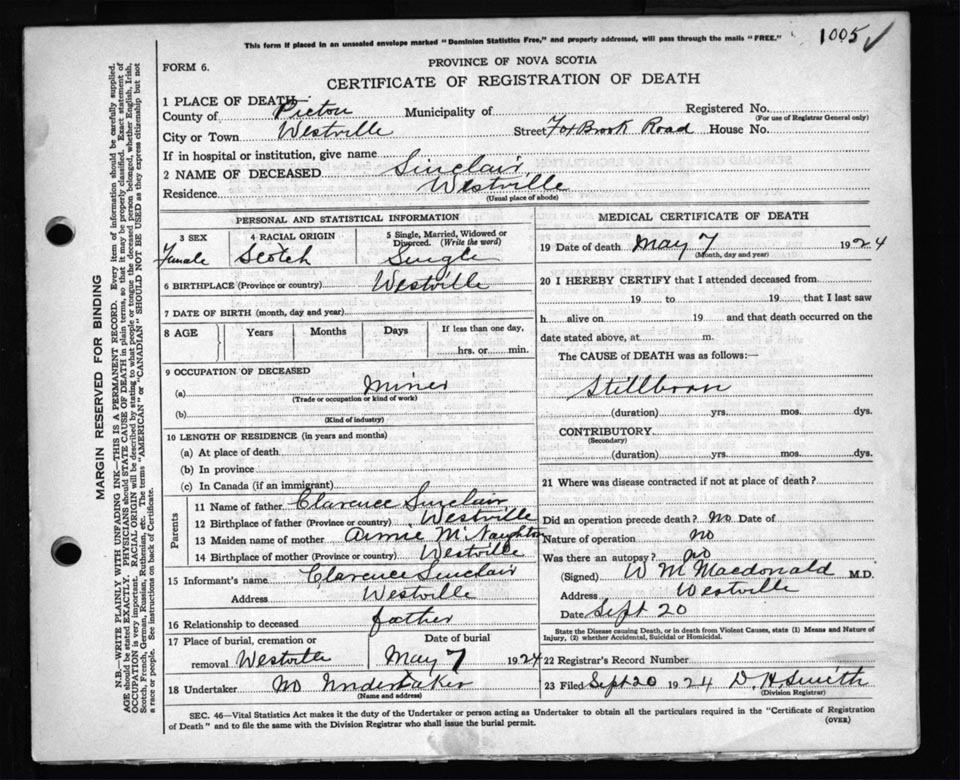 This form if placed in an unsealed envelope marked "Dominion Statistics Free," and properly addressed, will pass through the mails "FREE."
1005 ✓
FORM 6.
PROVINCE OF NOVA SCOTIA
CERTIFICATE OF REGISTRATION OF DEATH
MARGIN RESERVED FOR BINDING
N.B.—WRITE PLAINLY WITH UNFADING INK—THIS IS A PERMANENT RECORD. Every item of information should be carefully supplied.
AGE should be stated EXACTLY. PHYSICIANS should STATE CAUSE OF DEATH in plain terms, so that it may be properly classified. Exact statement of
OCCUPATION is very important. RACIAL ORIGIN will be described by stating to what people or tongue the deceased person belonged, whether English, Irish,
Scotch, French, German, Russian, Ruthenian, etc. The terms "AMERICAN" or "CANADIAN" SHOULD NOT BE USED as they express citizenship but not
a race or people. See instructions on back of Certificate.
1 PLACE OF DEATH
County of Pictou Municipality of Registered No.
(For use of Registrar General only)
City or Town Westville Street Fox Brook Road House No.
If in hospital or institution, give name
2 NAME OF DECEASED Sinclair,
Residence Westville
(Usual place of abode)
PERSONAL AND STATISTICAL INFORMATION
3 SEX Female
4 RACIAL ORIGIN Scotch
5 Single, Married, Widowed or Divorced. (Write the word) Single
6 BIRTHPLACE (Province or country) Westville
7 DATE OF BIRTH (month, day and year)
8 AGE Years Months Days If less than one day, hrs. or min.
9 OCCUPATION OF DECEASED
(a) Miner
(Trade or occupation or kind of work)
(b)
(Kind of industry)
10 LENGTH OF RESIDENCE (in years and months)
(a) At place of death
(b) In province
(c) In Canada (if an immigrant)
Parents
11 Name of father Clarence Sinclair
12 Birthplace of father (Province or country) Westville
13 Maiden name of mother Annie McNaughton
14 Birthplace of mother (Province or country) Westville
15 Informant's name Clarence Sinclair
Address Westville
16 Relationship to deceased father
17 Place of burial, cremation or removal Westville
Date of burial May 7 1924
18 Undertaker No Undertaker
(Name and address)
MEDICAL CERTIFICATE OF DEATH
19 Date of death May 7 1924
(Month, day and year)
20 I HEREBY CERTIFY that I attended deceased from
19 to 19 that I last saw
h alive on 19 and that death occurred on the
date stated above, at m.
The CAUSE of DEATH was as follows:—
Stillborn
(duration) yrs. mos. dys.
CONTRIBUTORY
(Secondary)
(duration) yrs. mos. dys.
21 Where was disease contracted if not at place of death?
Did an operation precede death? no Date of
Nature of operation no
Was there an autopsy? no
(Signed) W M Macdonald M.D.
Address Westville
Date Sept 20
State the Disease causing Death, or in death from Violent Causes, state (1) Means and Nature of
Injury, (2) whether Accidental, Suicidal or Homicidal.
22 Registrar's Record Number
23 Filed Sept 20 1924 D. H. Smith
(Division Registrar)
SEC. 46—Vital Statistics Act makes it the duty of the Undertaker or person acting as Undertaker to obtain all the particulars required in the "Certificate of Registration
of Death" and to file the same with the Division Registrar who shall issue the burial permit.
(OVER)